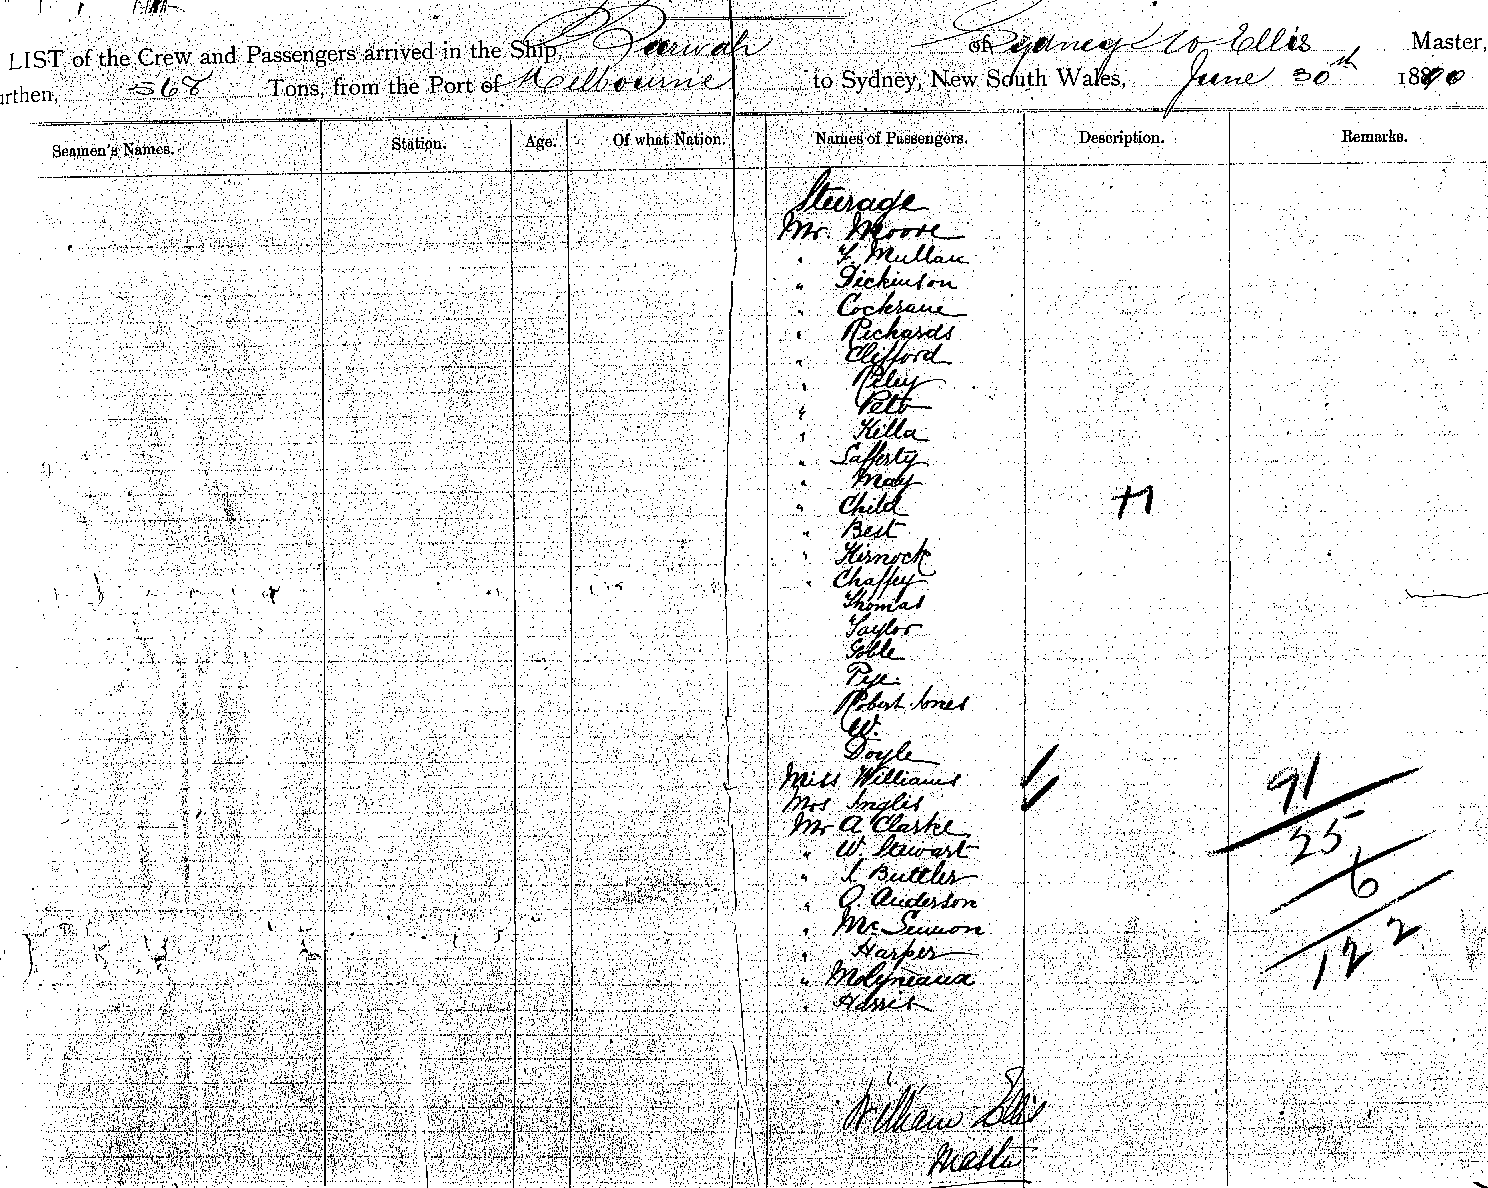 LIST of the Crew and Passengers arrived in the Ship Barwah of Sydney W Ellis Master,
urthen, 568 Tons, from the Port of Melbourne to Sydney, New South Wales, June 30th 1890
Seamen's Names. Station. Age. Of what Nation. Names of Passengers. Description. Remarks.
Steerage
Mr. Moore
" Mullan
" Dickinson
" Cochrane
" Richards
" Clifford
" Riley
" Pato
" Killa
" Lafferty
" May
" Child
" Best
" Kirnock
" Chaffey
Thomas
Taylor
Goble
Pye.
Robert Jones
W.
Doyle
Miss Williams
Mrs Inglis
Mr A Clarke
" W. Stewart
" Buttler
" Anderson
" Mc
" Harper
" Molyneaux
" Harris
91
25
6
122
William Ellis
Master